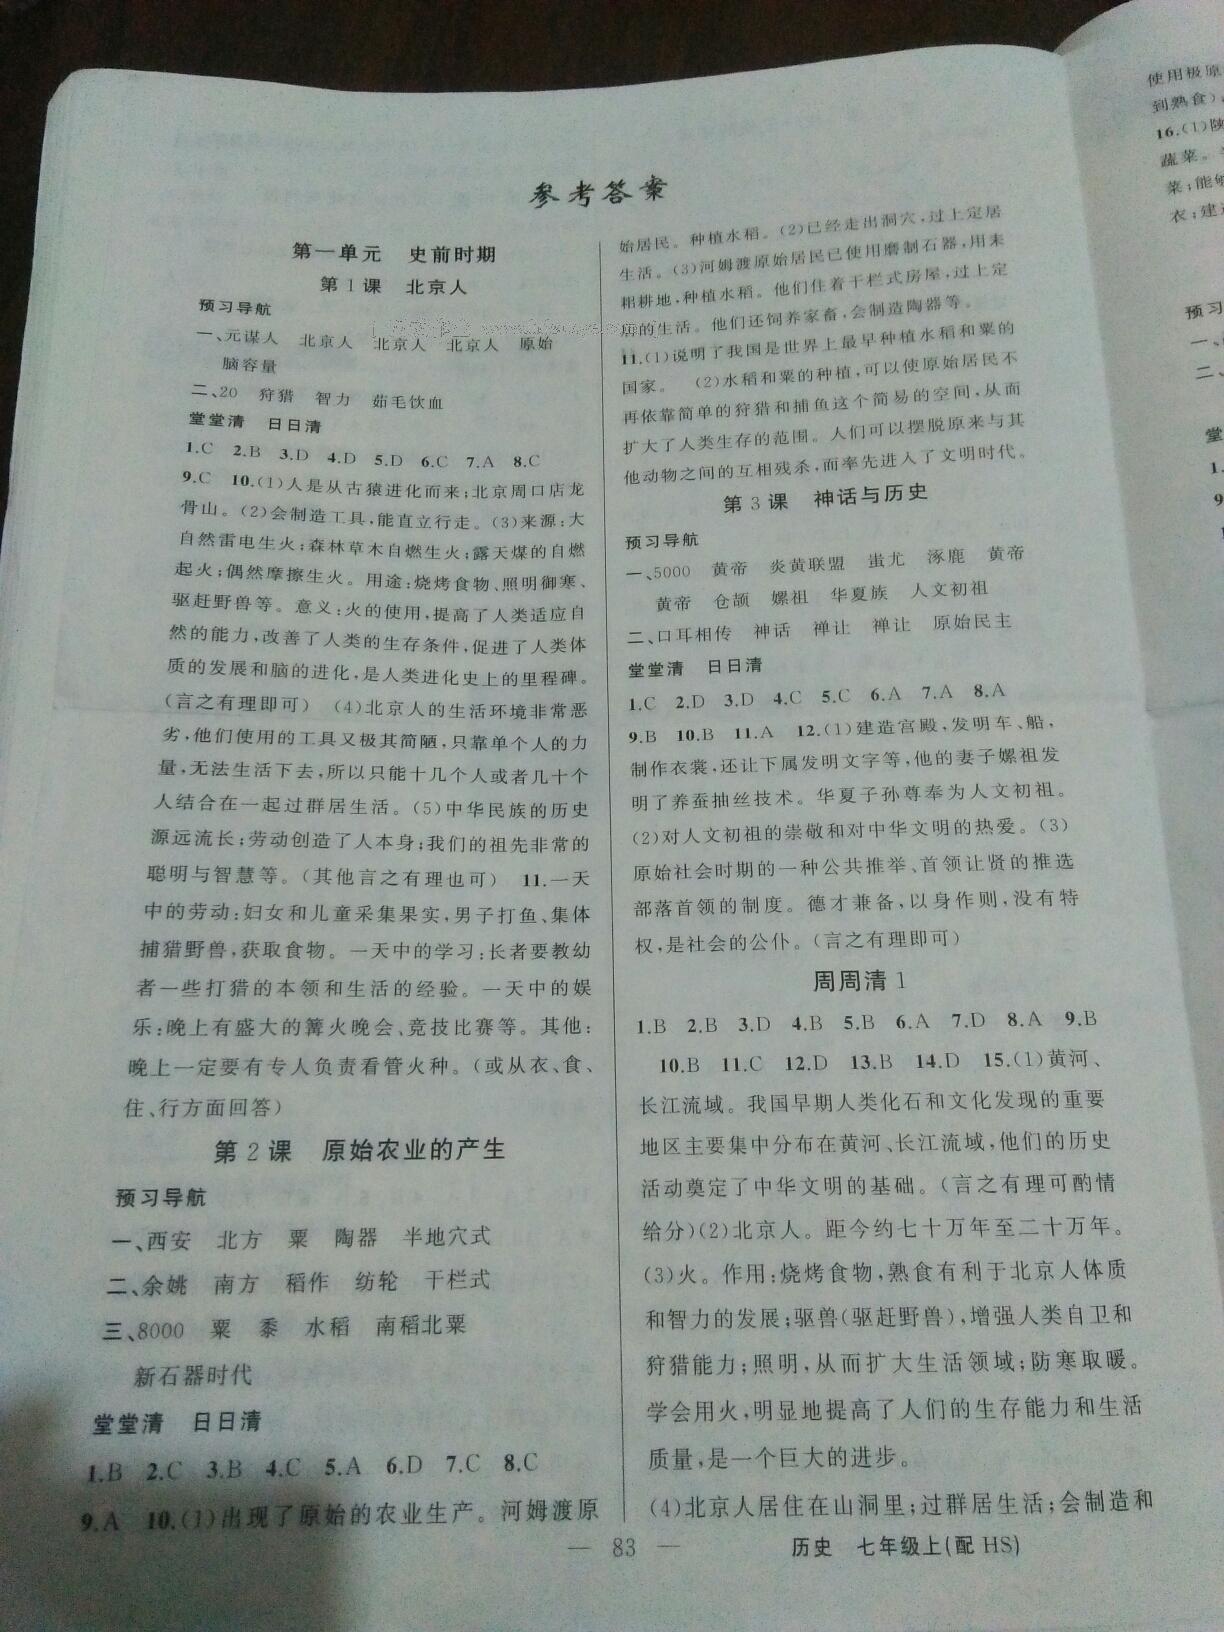 参考答案
第一单元 史前时期
第1课 北京人
预习导航
一、元谋人 北京人 北京人 北京人 原始
脑容量
二、20 狩猎 智力 茹毛饮血
堂堂清 日日清
1.C 2.B 3.D 4.D 5.D 6.C 7.A 8.C
9.C 10.(1)人是从古猿进化而来;北京周口店龙
骨山。(2)会制造工具,能直立行走。(3)来源:大
自然雷电生火;森林草木自燃生火;露天煤的自燃
起火;偶然摩擦生火。用途:烧烤食物、照明御寒、
驱赶野兽等。意义:火的使用,提高了人类适应自
然的能力,改善了人类的生存条件,促进了人类体
质的发展和脑的进化,是人类进化史上的里程碑。
(言之有理即可) (4)北京人的生活环境非常恶
劣,他们使用的工具又极其简陋,只靠单个人的力
量,无法生活下去,所以只能十几个人或者几十个
人结合在一起过群居生活。(5)中华民族的历史
源远流长;劳动创造了人本身;我们的祖先非常的
聪明与智慧等。(其他言之有理也可) 11.一天
中的劳动:妇女和儿童采集果实,男子打鱼、集体
捕猎野兽,获取食物。一天中的学习:长者要教幼
者一些打猎的本领和生活的经验。一天中的娱
乐:晚上有盛大的篝火晚会、竞技比赛等。其他:
晚上一定要有专人负责看管火种。(或从衣、食、
住、行方面回答)
第2课 原始农业的产生
预习导航
一、西安 北方 粟 陶器 半地穴式
二、余姚 南方 稻作 纺轮 干栏式
三、8000 粟 黍 水稻 南稻北粟
新石器时代
堂堂清 日日清
1.B 2.C 3.B 4.C 5.A 6.D 7.C 8.C
9.A 10.(1)出现了原始的农业生产。河姆渡原
始居民。种植水稻。(2)已经走出洞穴,过上定居
生活。(3)河姆渡原始居民已使用磨制石器,用耒
耜耕地,种植水稻。他们住着干栏式房屋,过上定
居的生活。他们还饲养家畜,会制造陶器等。
11.(1)说明了我国是世界上最早种植水稻和粟的
国家。 (2)水稻和粟的种植,可以使原始居民不
再依靠简单的狩猎和捕鱼这个简易的空间,从而
扩大了人类生存的范围。人们可以摆脱原来与其
他动物之间的互相残杀,而率先进入了文明时代。
第3课 神话与历史
预习导航
一、5000 黄帝 炎黄联盟 蚩尤 涿鹿 黄帝
黄帝 仓颉 嫘祖 华夏族 人文初祖
二、口耳相传 神话 禅让 禅让 原始民主
堂堂清 日日清
1.C 2.D 3.D 4.C 5.C 6.A 7.A 8.A
9.B 10.B 11.A 12.(1)建造宫殿,发明车、船,
制作衣裳,还让下属发明文字等,他的妻子嫘祖发
明了养蚕抽丝技术。华夏子孙尊奉为人文初祖。
(2)对人文初祖的崇敬和对中华文明的热爱。(3)
原始社会时期的一种公共推举、首领让贤的推选
部落首领的制度。德才兼备,以身作则,没有特
权,是社会的公仆。(言之有理即可)
周周清1
1.B 2.B 3.D 4.B 5.B 6.A 7.D 8.A 9.B
10.B 11.C 12.D 13.B 14.D 15.(1)黄河、
长江流域。我国早期人类化石和文化发现的重要
地区主要集中分布在黄河、长江流域,他们的历史
活动奠定了中华文明的基础。(言之有理可酌情
给分)(2)北京人。距今约七十万年至二十万年。
(3)火。作用:烧烤食物,熟食有利于北京人体质
和智力的发展;驱兽(驱赶野兽),增强人类自卫和
狩猎能力;照明,从而扩大生活领域;防寒取暖。
学会用火,明显地提高了人们的生存能力和生活
质量,是一个巨大的进步。
(4)北京人居住在山洞里;过群居生活;会制造和
— 83 —
历史 七年级上(配HS)
使用极原
到熟食)
16.(1)陕
蔬菜。
菜;能够
衣;建造
预习
一、
二、
堂
1.
9